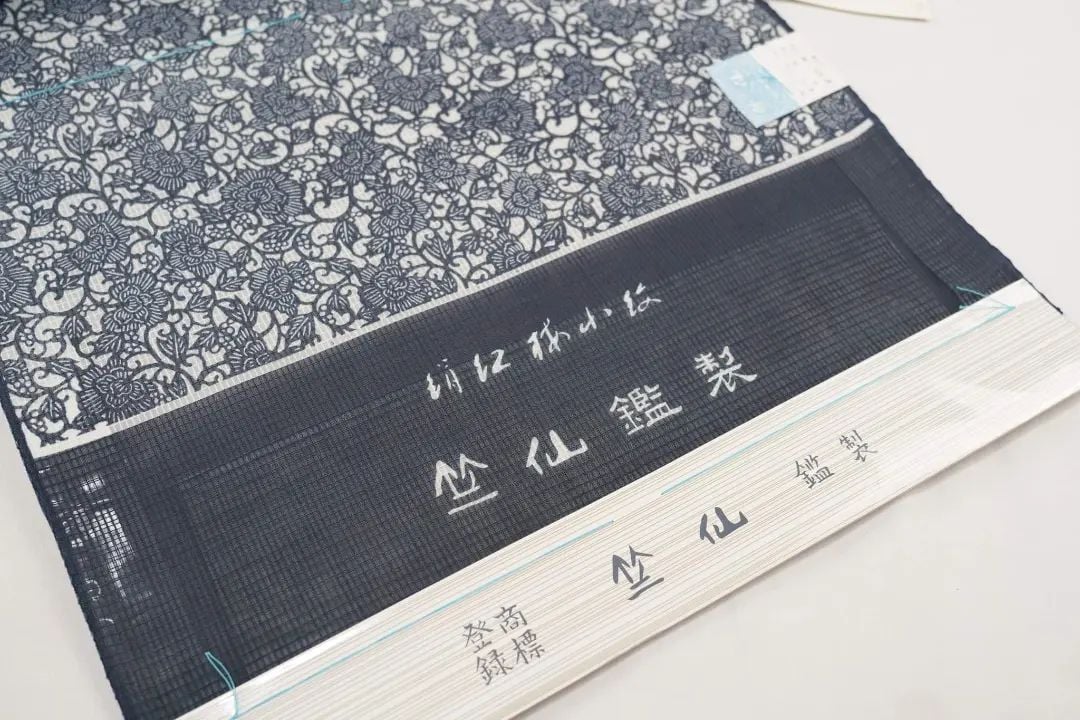 絹紅梅小紋
竺仙鑑製
竺仙鑑製
登録商標